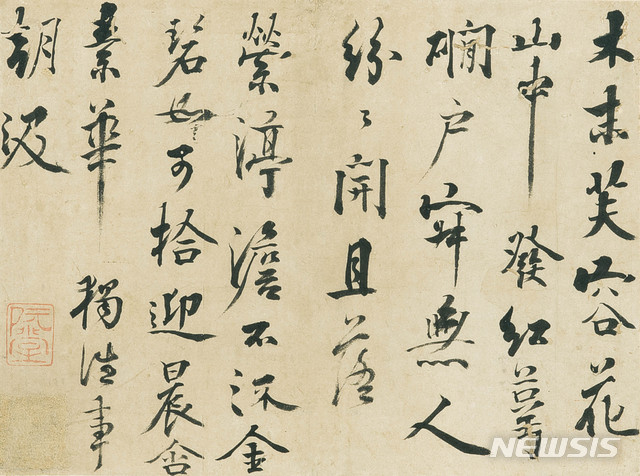 木末芙容花
山中發紅萼
磵户寂無人
紛々開且落
縈渟澹不流金
碧如可拾迎晨含
素華獨往事
朝汲
NEWSIS